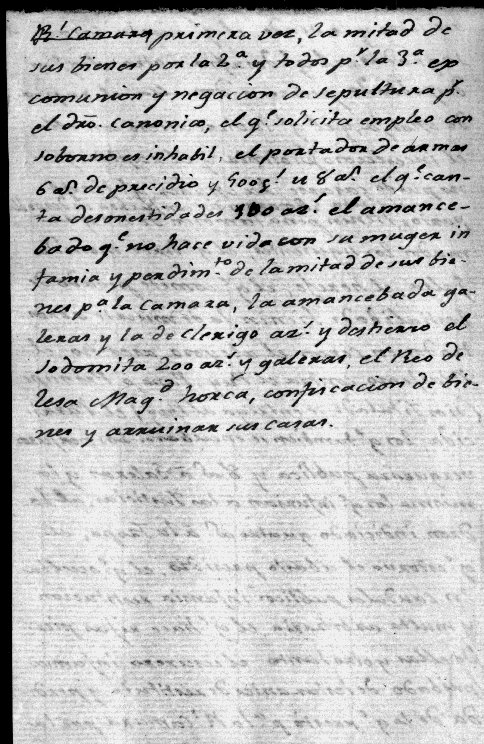 Rˡ Camara primera vez, la mitad de
sus bienes por la 2.ª y todos p.ʳ la 3.ª ex
comunion y negacion de sepultura p.ʳ
el dro. canonico, el q.ᵉ solicita empleo con
soborno es inhabil, el portador de armas
6 a.ˢ de precidio y 500 u 8 a.ˢ el q.ᵉ can-
ta desonestidades 100 az.ˢ el amance-
bado q.ᵉ no hace vida con su muger in
famia y perdim.ᵗᵒ de la mitad de sus bie-
nes p.ª la camara, la amancebada ga-
leras y la de clerigo az.ˢ y destierro el
sodomita 200 az.ˢ y galeras, el Reo de
lesa Mag.ᵈ horca, confiscacion de bie-
nes y arruinar sus casas.